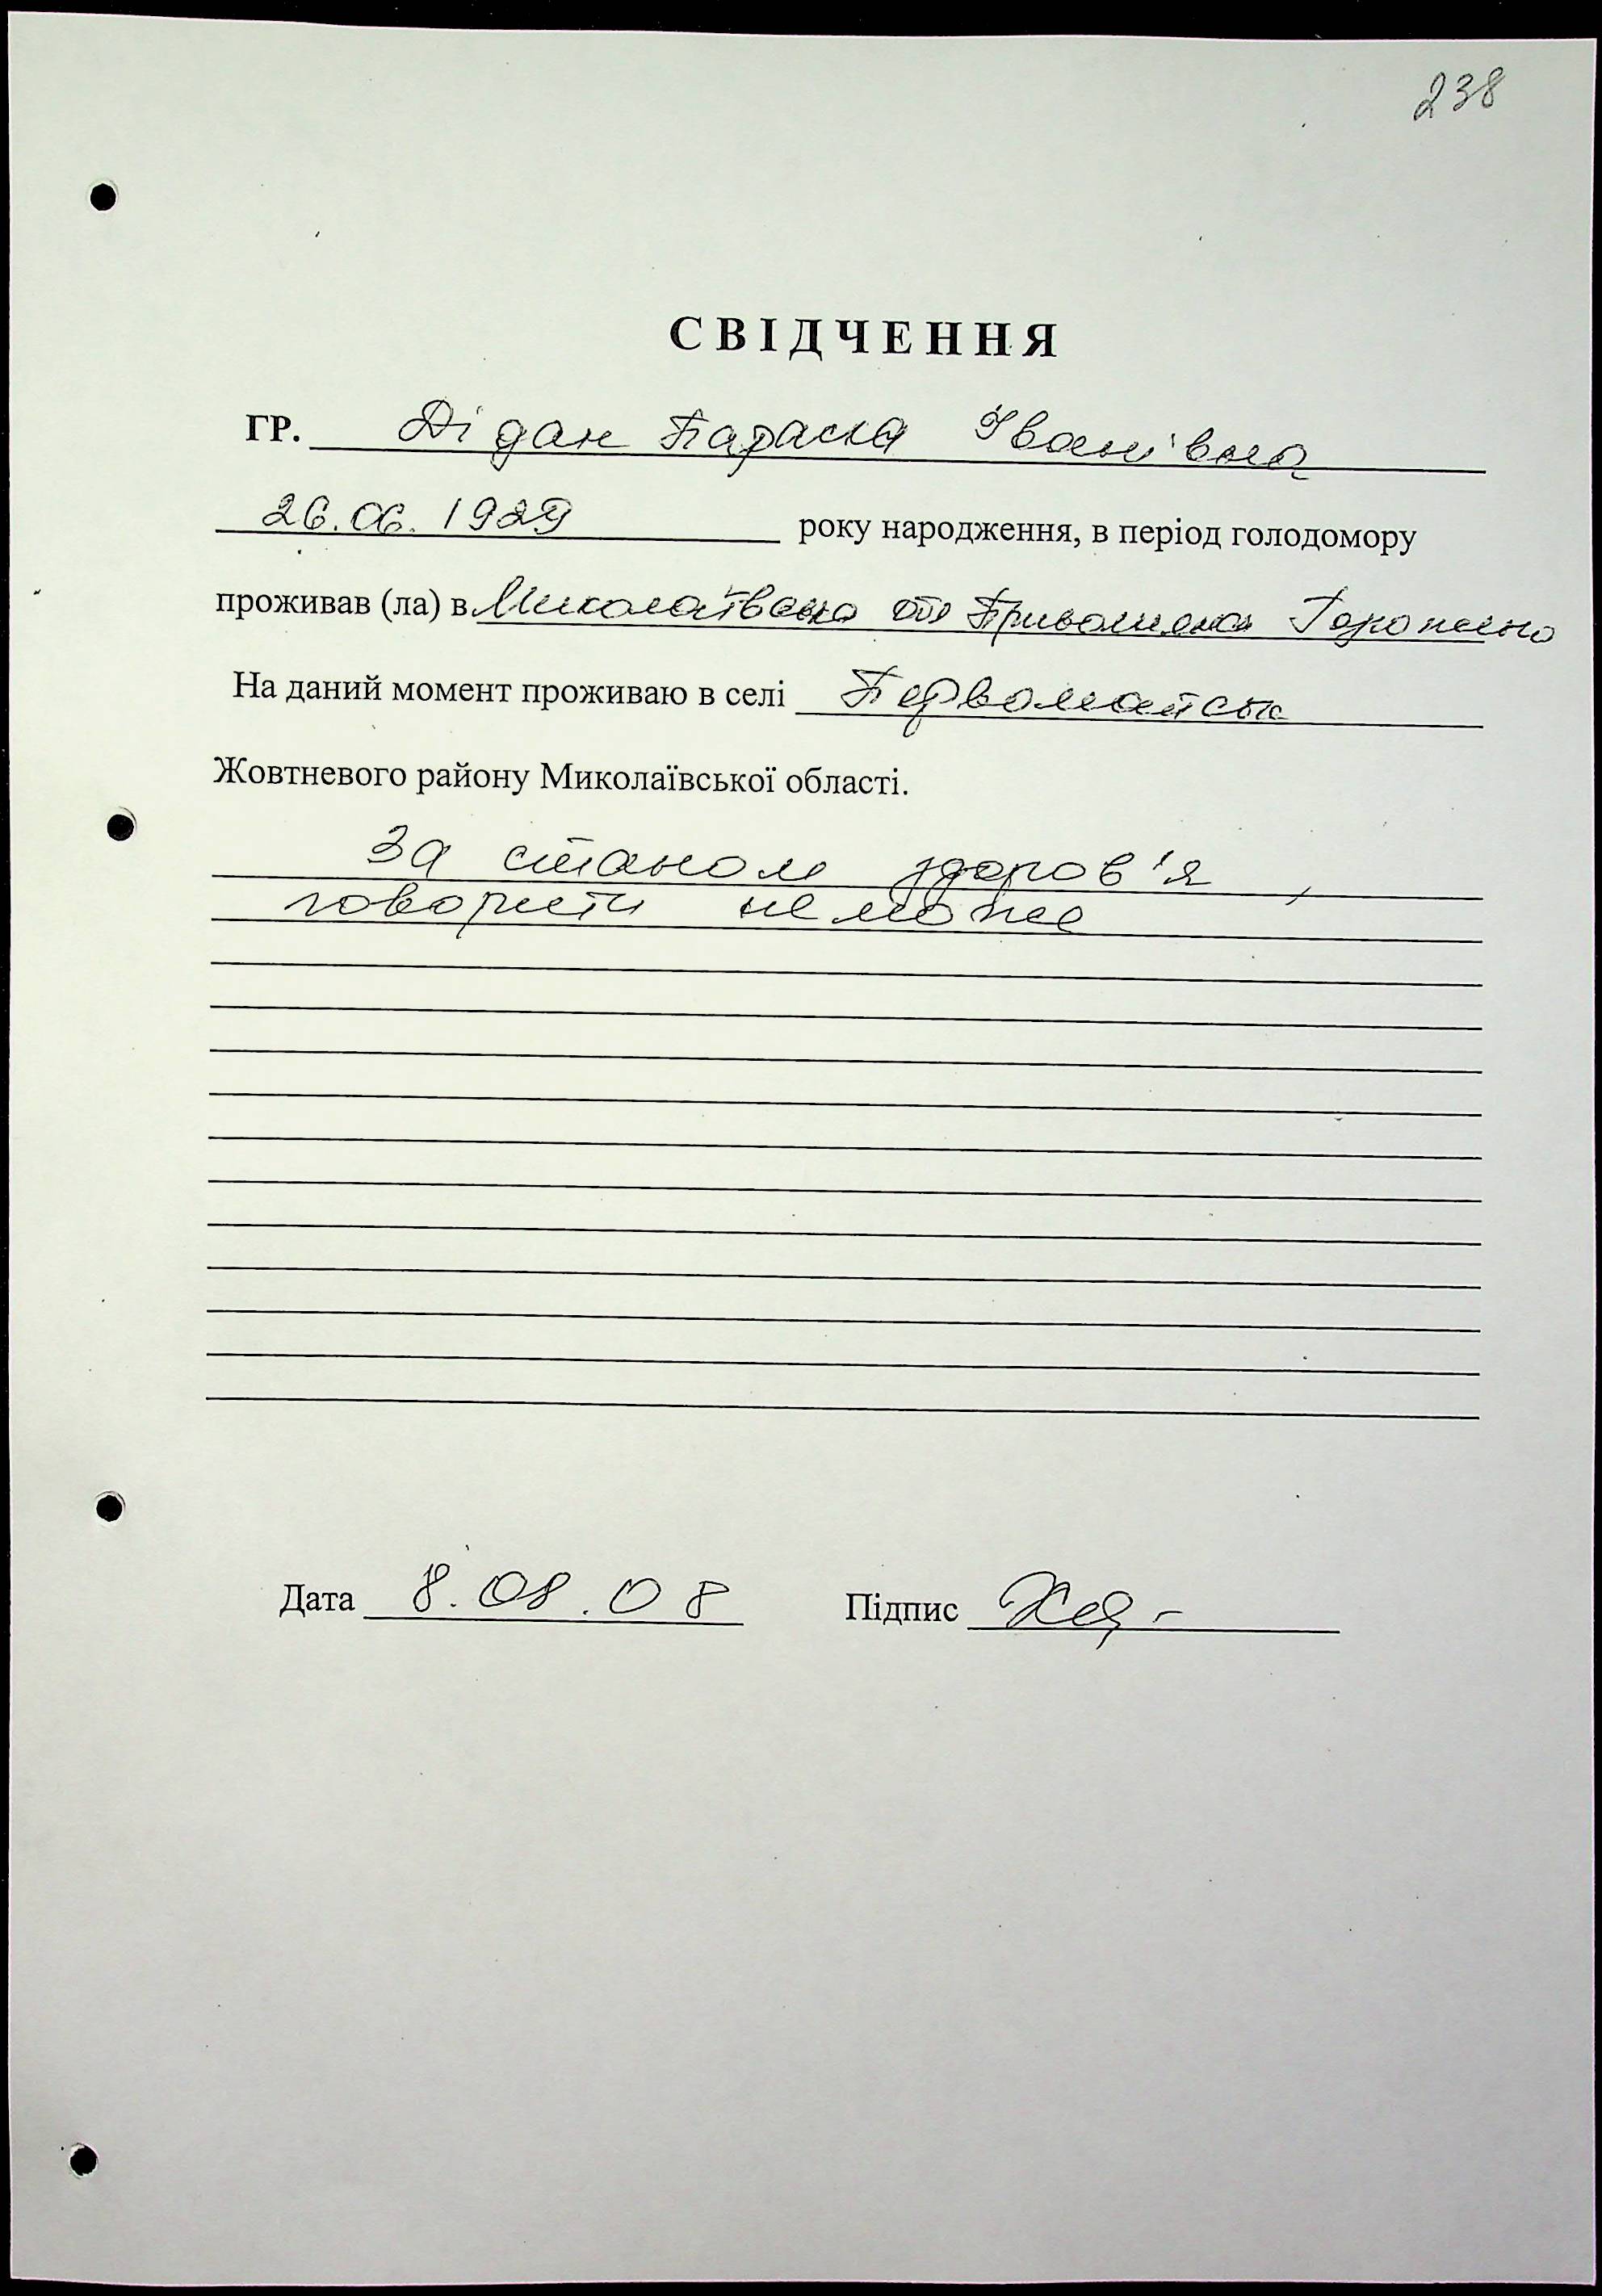 238
СВІДЧЕННЯ
ГР. Дідан Параска Іванівна
26.06.1929 року народження, в період голодомору
проживав (ла) в Миколаївська обл Горожено
На даний момент проживаю в селі Первомайськ
Жовтневого району Миколаївської області.
За станом здоров'я,
говорити не може
Дата 8.08.08 Підпис